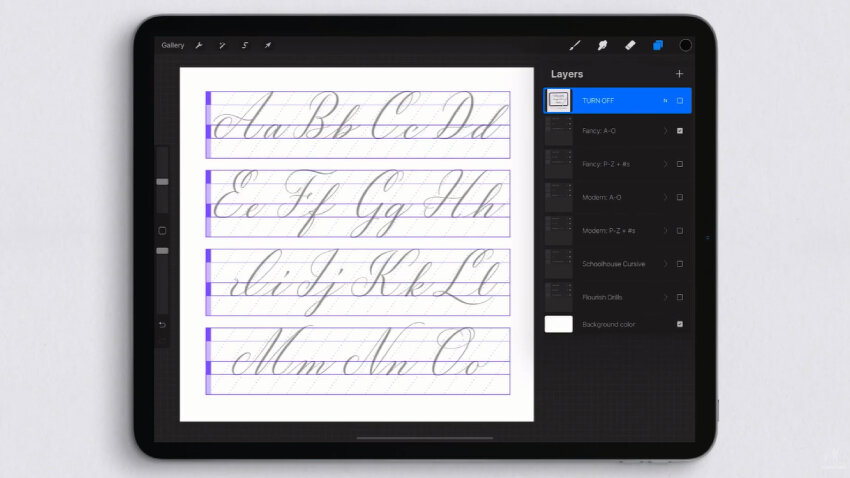 Gallery
Layers
TURN OFF
N
Fancy: A-O
Fancy: P-Z + #s
Modern: A-O
Modern: P-Z + #s
Schoolhouse Cursive
Flourish Drills
Background color
Aa Bb Cc Dd
Ee Ff Gg Hh
Ii Jj Kk Ll
Mm Nn Oo